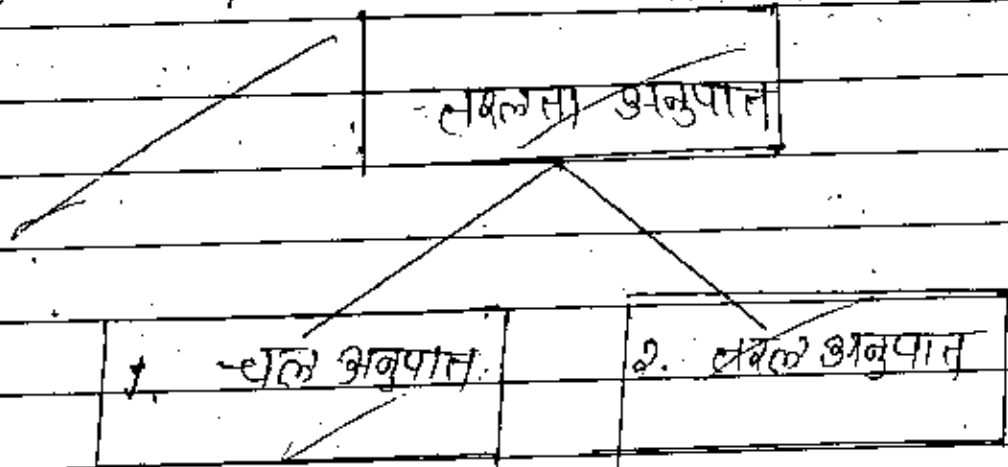 तरलता अनुपात
1. चल अनुपात
2. तरल अनुपात